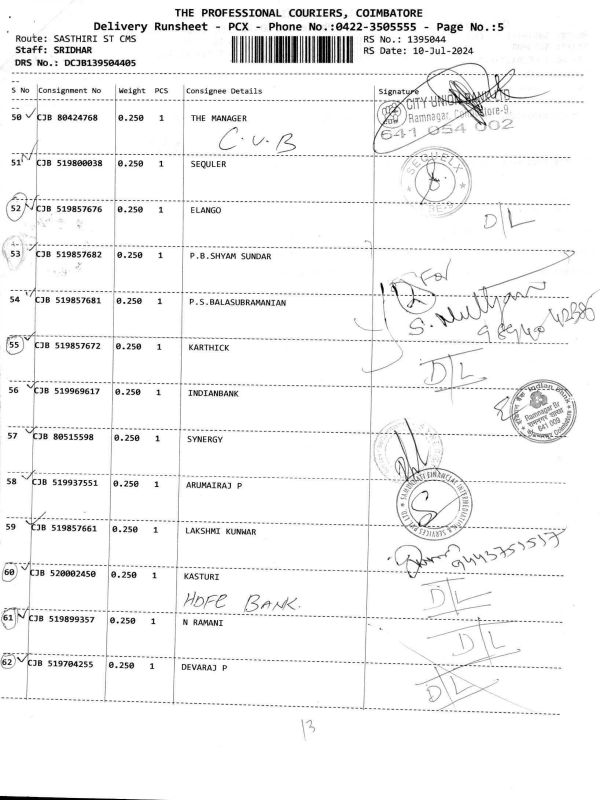 THE PROFESSIONAL COURIERS, COIMBATORE
Delivery Runsheet - PCX - Phone No.:0422-3505555 - Page No.:5
Route: SASTHIRI ST CMS RS No.: 1395044
Staff: SRIDHAR RS Date: 10-Jul-2024
DRS No.: DCJB139504405
S No Consignment No Weight PCS Consignee Details Signature
CITY UNION BANK LTD
50 CJB 80424768 0.250 1 THE MANAGER Ramnagar, -9.
C.U.B 641 054 002
51 CJB 519800038 0.250 1 SEQULER SEQUELX
52 CJB 519857676 0.250 1 ELANGO D/L
53 CJB 519857682 0.250 1 P.B.SHYAM SUNDAR
For
54 CJB 519857681 0.250 1 P.S.BALASUBRAMANIAN
55 CJB 519857672 0.250 1 KARTHICK D/L
56 CJB 519969617 0.250 1 INDIANBANK Indian Bank
Ramnagar Br
641 009
57 CJB 80515598 0.250 1 SYNERGY
58 CJB 519937551 0.250 1 ARUMAIRAJ P
59 CJB 519857661 0.250 1 LAKSHMI KUNWAR
9443751517
60 CJB 520002450 0.250 1 KASTURI D/L
HDFC BANK.
61 CJB 519899357 0.250 1 N RAMANI D/L
62 CJB 519704255 0.250 1 DEVARAJ P D/L
13